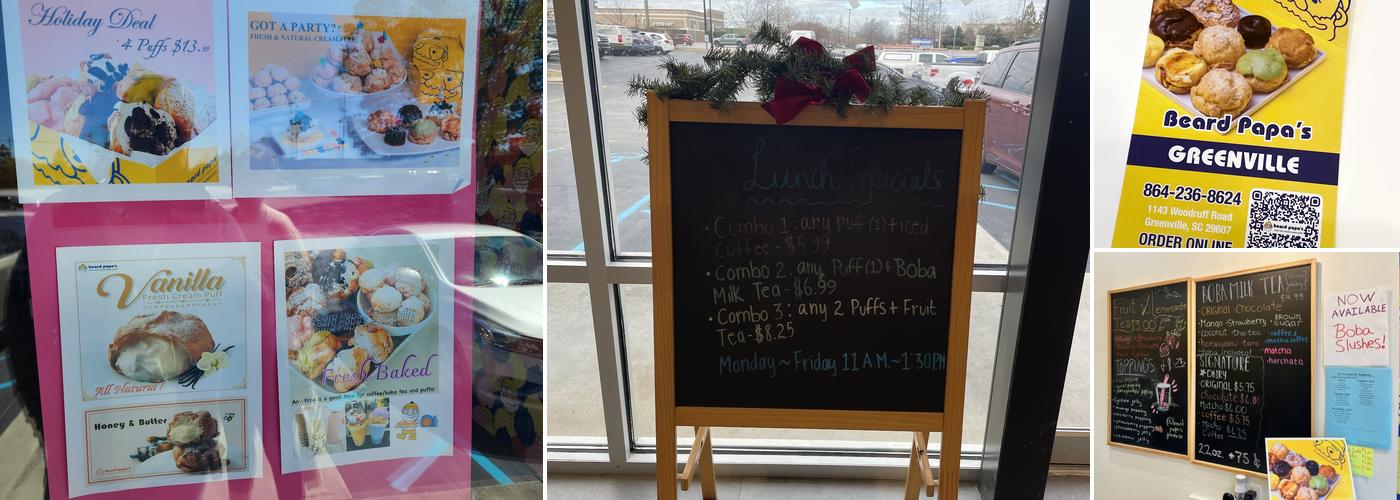 Holiday Deal
4 Puffs $13.99
beard papa's
GOT A PARTY?
FRESH & NATURAL CREAM PUFFS
beard papa's
Vanilla
Fresh Cream Puff
All Natural!
Honey & Butter
beard papa's
Fresh Baked
Any time is a good time for coffee/boba tea and puffs!
Lunch Specials
• Combo 1: any puff (1) + iced
coffee - $5.99
• Combo 2: any Puff(1) + Boba
Milk Tea - $6.99
• Combo 3: any 2 Puffs + Fruit
Tea - $8.25
Monday ~ Friday 11 A.M. ~ 1:30PM
Beard Papa's
GREENVILLE
864-236-8624
1143 Woodruff Road
Greenville, SC 29607
ORDER ONLINE
Fruit
Lemonade
Teas
TOPPINGS
BOBA MILK TEA
$4.99
Original • Chocolate
• Mango • Strawberry
• Brown sugar
• coconut • thai tea
• honeydew • taro
• matcha
• horchata
SIGNATURE
DAIRY
ORIGINAL $5.75
Chocolate $6.00
Matcha $6.00
Coffee $5.75
Mocha $6.25
Coffee
22oz. + 75¢
NOW
AVAILABLE
Boba
Slushes!